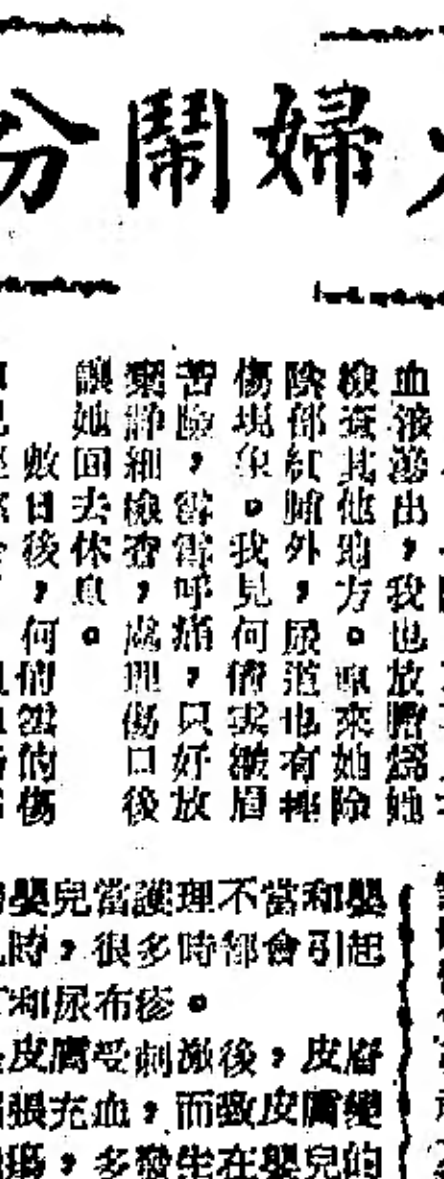 婦鬧分
血液滲出,我也放膽為她
檢查其他地方。原來她除
陰部紅腫外,尿道也有挫
傷現象。我見何倩雲皺眉
苦臉,雪雪呼痛,只好放
棄詳細檢查,處理傷口後
讓她回去休息。
數日後,何倩雲的傷
嬰兒當護理不當和嬰
時,很多時都會引起
和尿布疹。
皮膚受刺激後,皮膚
脹充血,而致皮膚變
,多發生在嬰兒的